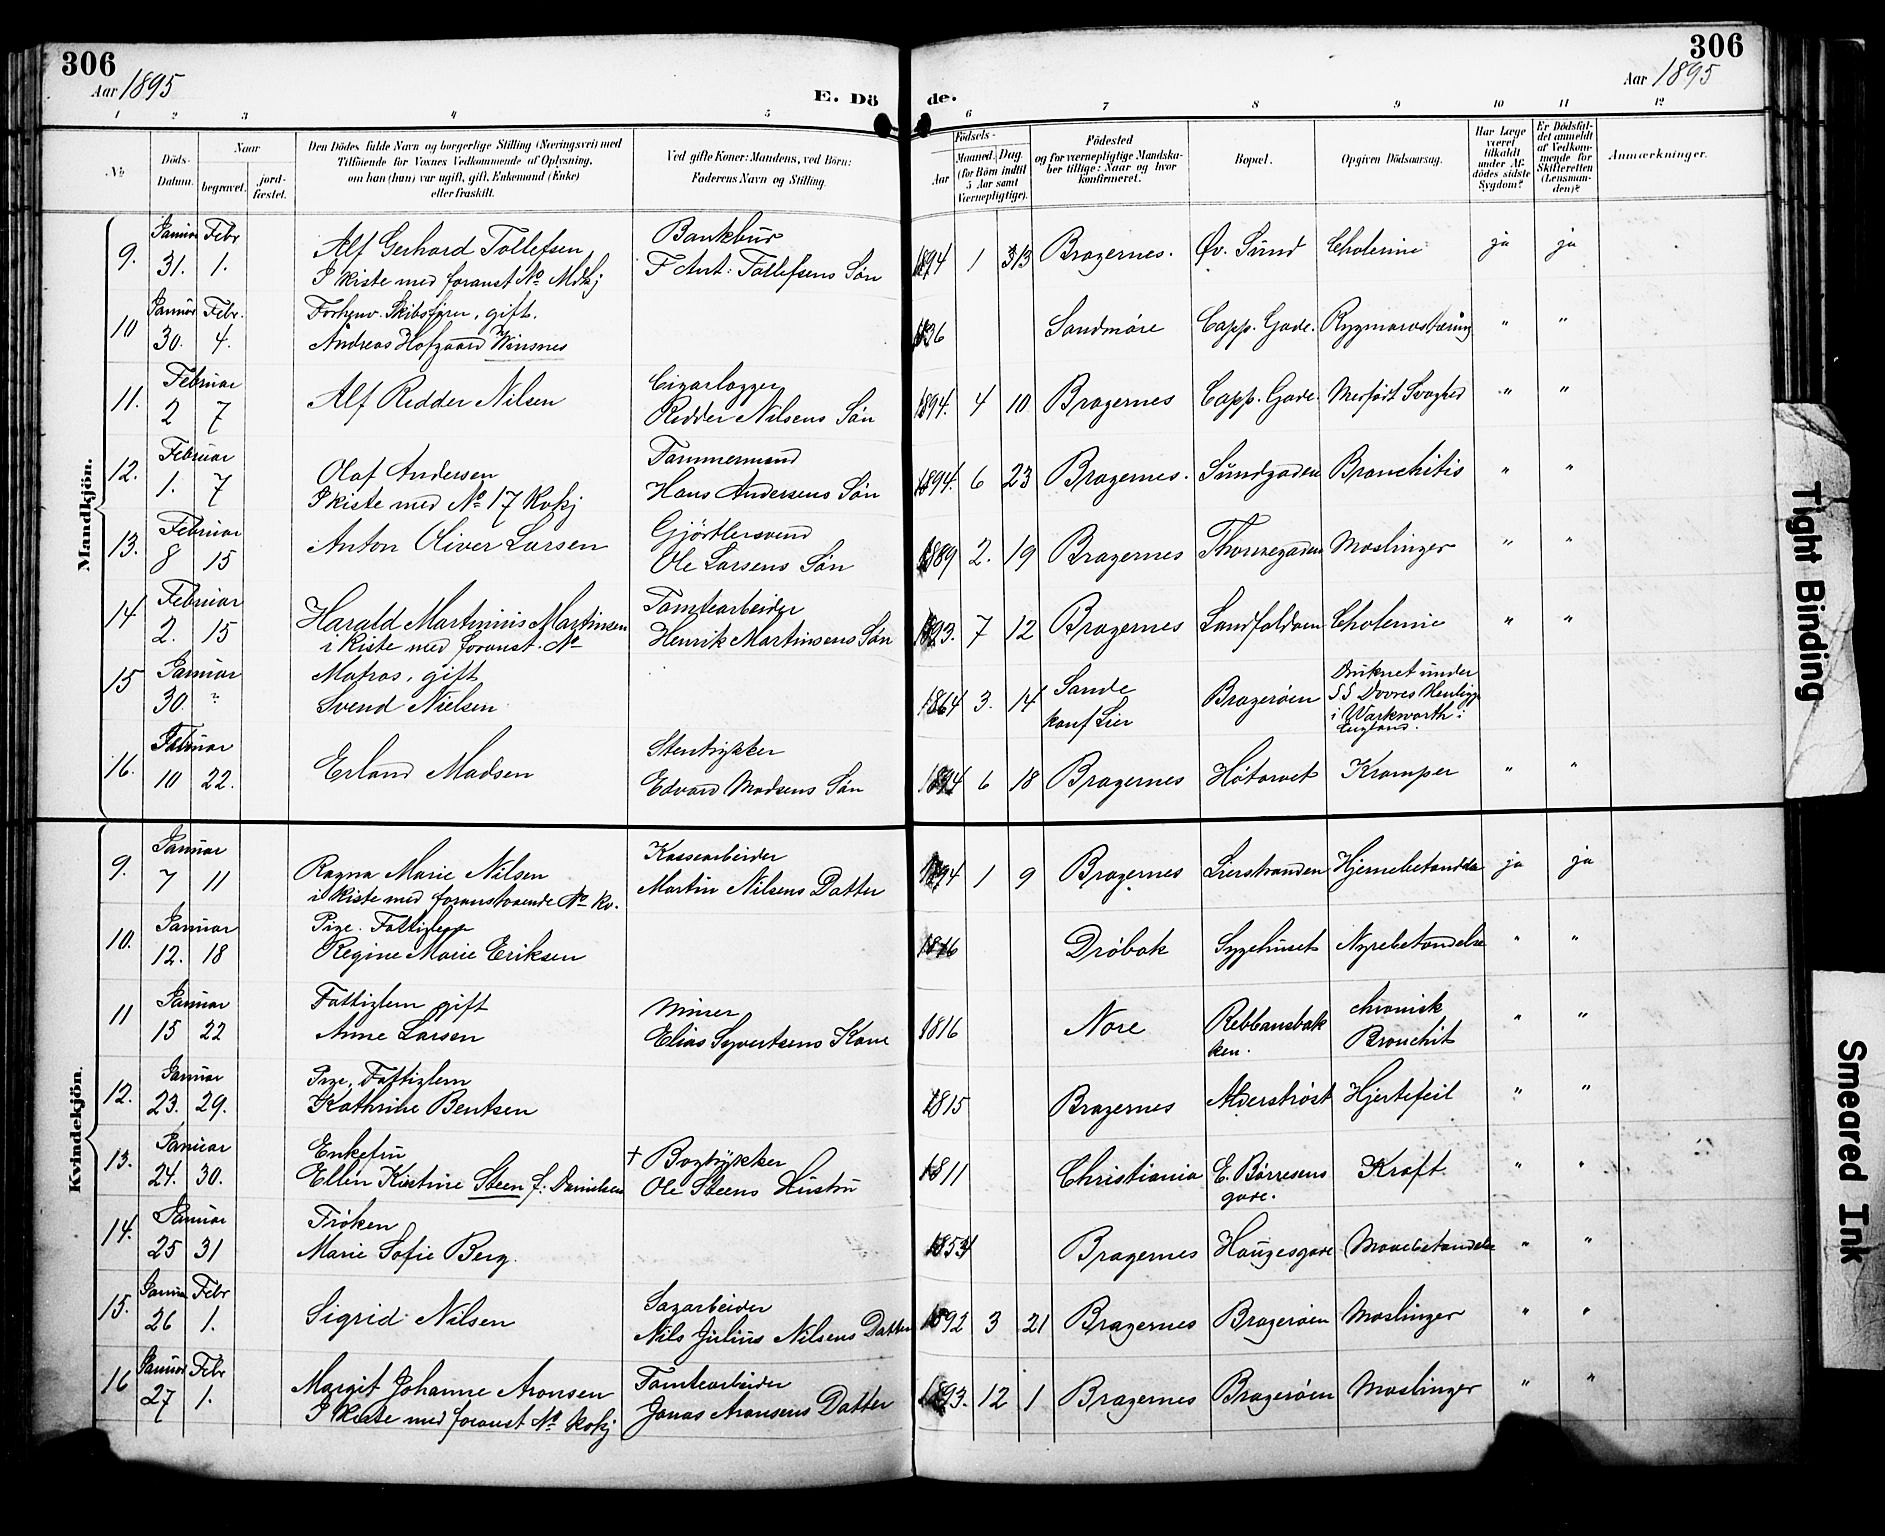 306
Aar 1895
E. Dö
de.
306
Aar 1895
1 2 3 4 5 6 7 8 9 10 11 12
No.
Döds-Datum.
Naar
begravet.
jord-fæstet.
Den Dödes fulde Navn og borgerlige Stilling (Næringsvei) med
Tilföiende for Voxnes Vedkommende af Oplysning,
om han (hun) var ugift, gift, Enkemand (Enke)
eller fraskilt.
Ved gifte Koner: Mandens, ved Börn:
Faderens Navn og Stilling.
Födsels-
Aar
Maaned. Dag
(for Börn indtil
5 Aar samt
Værnepligtige).
Födested
og for værnepligtige Mandska-
ber tillige: Naar og hvor
konfirmeret.
Bopæl.
Opgiven Dödsaarsag.
Har Læge
været
tilkaldt
under Af-
dödes sidste
Sygdom?
Er Dödsfal-
det anmeldt
af Vedkom-
mende for
Skifteretten
(Lensman-
den)?
Anmærkninger.
Mandkjön.
Januar Febr Bankbud
9. 31. 1. Alf Gerhard Tollefsen F Ant: Tollefsens Søn 1894 1 13 Bragernes. Øv. Sund Cholerine ja ja
I kiste med foranst No Mdkj
Januar Febr. Forhenv. Skibsfører, gift.
10 30. 4. Andreas Hofgaard Winsnes 1836 Sandmöre Capp. Gade. Rygmarvstæring " "
Februar Cigarlægger
11. 2 7 Alf Redder Nilsen Redder Nilsens Søn 1894. 4 10 Bragernes Capp. Gade. Medfödt Svaghed " "
Februar Tømmermand
12. 1. 7 Olaf Andersen Hans Andersens Søn 1894. 6 23 Bragernes. Sundgaden Bronchitis " "
I kiste med No 17 Kvkj
Februar Gjörtlersvend
13. 8 15 Anton Oliver Larsen Ole Larsens Søn 1889 2. 19 Bragernes Thornegaden Mæslinger " "
Februar Tomtearbeider
14 2. 15 Harald Martinius Martinsen Henrik Martinsens Søn 1893. 7 12 Bragernes Landfaldøen Cholerine " "
i kiste med foranst. No
Januar Matros, gift
15 30. ? Svend Nielsen 1864 3. 14 Sande
konf Lier Bragerøen Druknet under
SS Dovres Henligg
i Warkworth i
England.
Februar Stentrykker
16. 10 22. Erland Madsen Edvard Madsens Søn 1894 6 18 Bragernes Høtorvet Kramper " "
Kvindekjön.
Januar Kassearbeider
9. 7 11 Ragna Marie Nilsen Martin Nilsens Datter 1894 1 9 Bragernes Lierstranden Hjernebetændelse ja ja
i kiste med foranstaaende No Kv.
Januar Pige. Fattiglem
10. 12. 18 Regine Marie Eriksen 1816 Dröbak Sygehuset Nyrebetændelse " "
Januar Fattiglem gift Minerer
11 15 22 Anne Larsen Elias Syvertsens Kone 1816 Nore Rebbansbak
ken. chronisk
Bronchit " "
Januar Pige, Fattiglem
12. 23. 29. Kathrine Bentsen 1815 Bragernes Alderströst Hjertefeil " "
Januar Enkefru + Bogtrykker
13. 24. 30. Ellen Kistine Steen f. Danielsen Ole Steens Hustru 1811 Christiania E. Börresens
gade. Kræft " "
Januar Frøken
14. 25 31 Marie Sofie Berg. 1854 Bragernes Haugesgade Mavebetændelse " "
Januar Febr Sagarbeider
15. 26 1. Sigrid Nilsen Nils Julius Nilsens Datter 1892 3 21 Bragernes Bragerøen Mæslinger " "
Januar Febr Tomtearbeider
16 27 1. Margit Johanne Aronsen Jonas Aronsens Datter 1893. 12 1 Bragernes Bragerøen Mæslinger " "
I kiste med foranst No Kvkj
Tight Binding
Smeared Ink